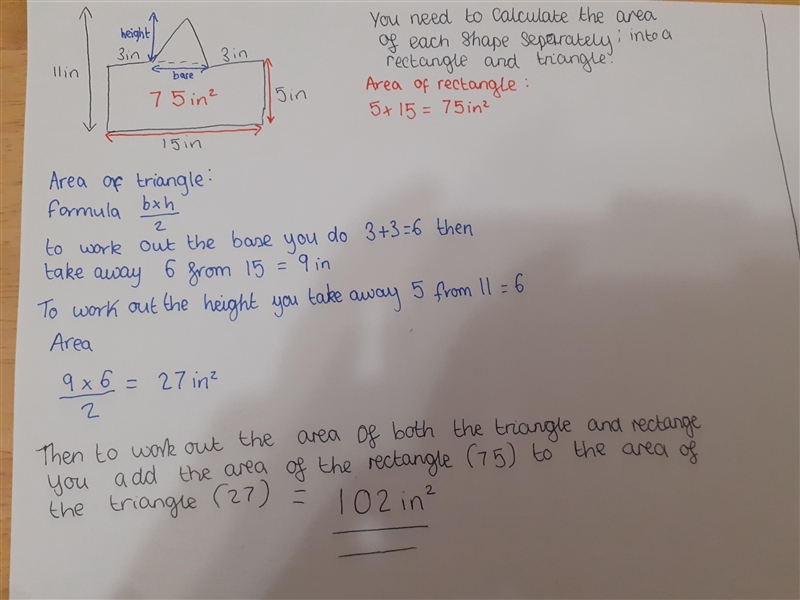 height
3in
3in
11in
base
75in²
5in
15in
You need to Calculate the area
of each shape Separately; into a
rectangle and triangle.
Area of rectangle:
5 x 15 = 75in²
Area of triangle:
formula b x h
2
to work out the base you do 3+3=6 then
take away 6 from 15 = 9 in
To work out the height you take away 5 from 11 = 6
Area
9 x 6 = 27 in²
2
Then to work out the area Of both the triangle and rectange
you add the area of the rectangle (75) to the area of
the triangle (27) = 102 in²